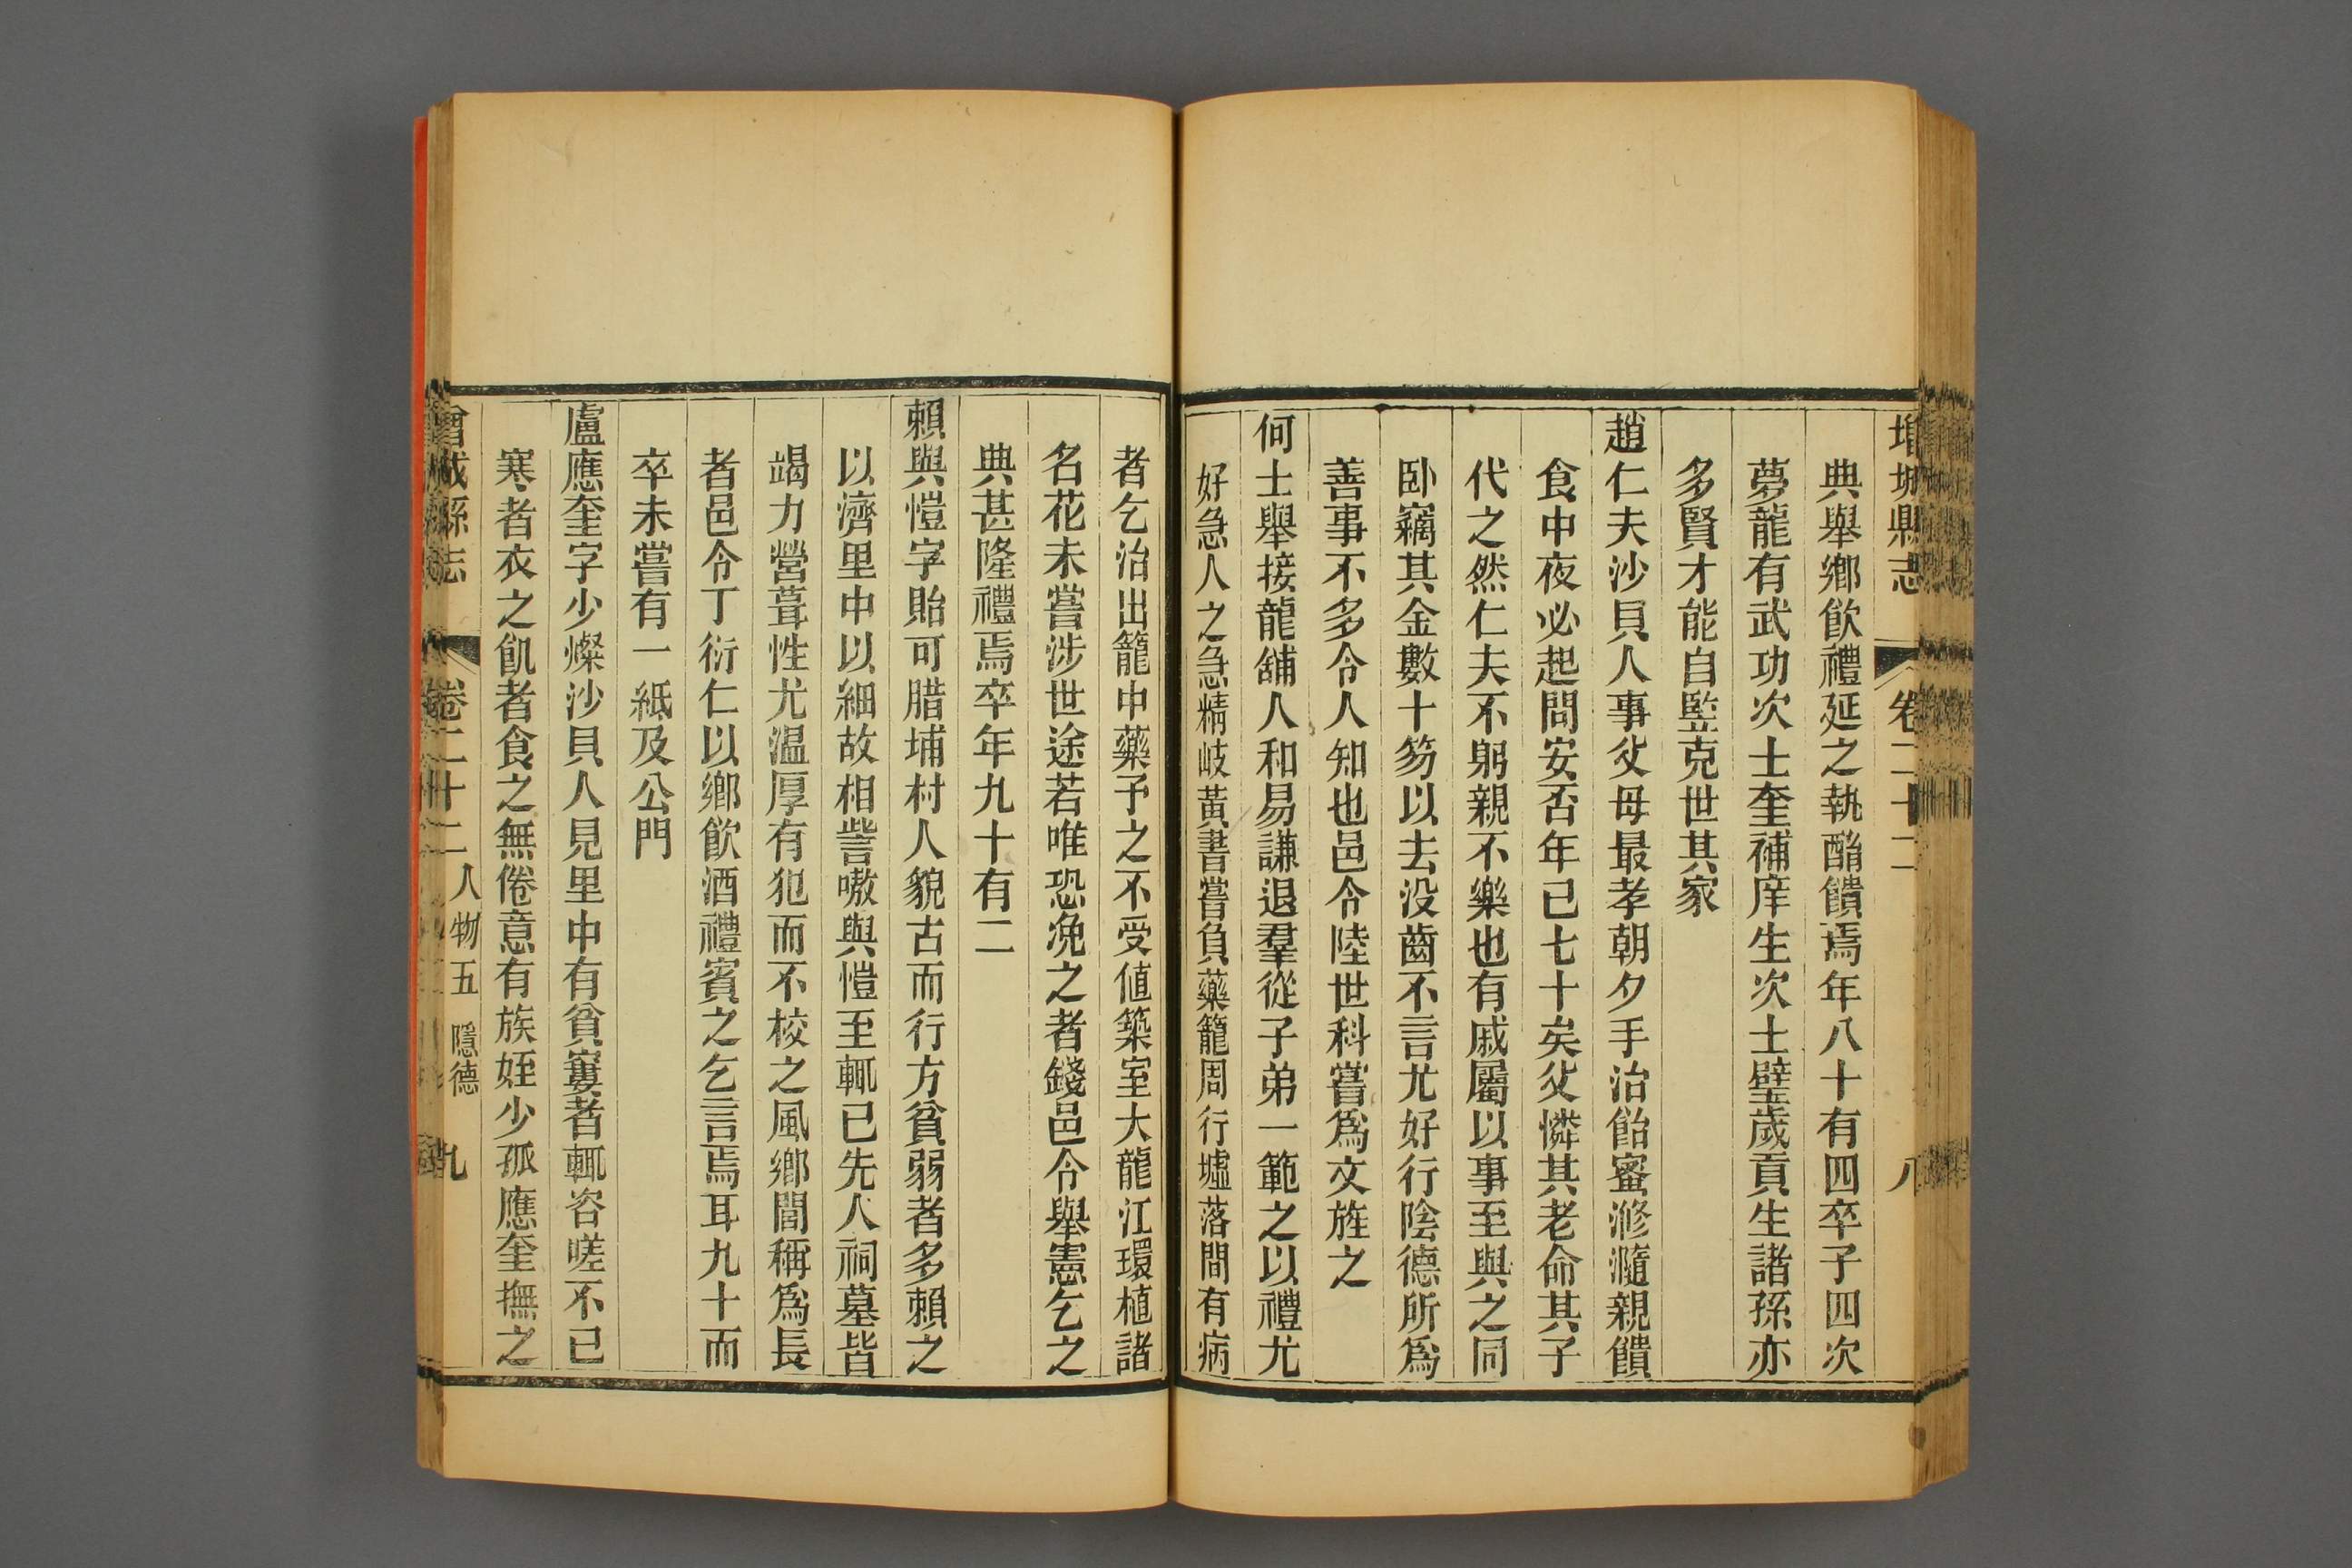 增城縣志 卷二十二 八
典舉鄉飲禮延之執酳饋焉年八十有四卒子四次
夢龍有武功次士奎補庠生次士璧歲貢生諸孫亦
多賢才能自監克世其家
趙仁夫沙貝人事父母最孝朝夕手治飴蜜滫瀡親饋
食中夜必起問安否年已七十矣父憐其老命其子
代之然仁夫不躬親不樂也有戚屬以事至與之同
卧竊其金數十笏以去没齒不言尤好行陰德所爲
善事不多令人知也邑令陸世科嘗爲文旌之
何士舉接龍舖人和易謙退羣從子弟一範之以禮尤
好急人之急精岐黃書嘗負藥籠周行墟落間有病
者乞治出籠中藥予之不受値築室大龍江環植諸
名花未嘗涉世途若唯恐浼之者錢邑令舉憲乞之
典甚隆禮焉卒年九十有二
賴與愷字貽可腊埔村人貌古而行方貧弱者多賴之
以濟里中以細故相訾嗷與愷至輒已先人祠墓皆
竭力營葺性尤温厚有犯而不校之風鄉閭稱爲長
者邑令丁衍仁以鄉飲酒禮賓之乞言焉耳九十而
卒未嘗有一紙及公門
盧應奎字少燦沙貝人見里中有貧窶者輒咨嗟不已
寒者衣之飢者食之無倦意有族姪少孤應奎撫之
曾城縣志 卷二十二 人物五 隱德 九